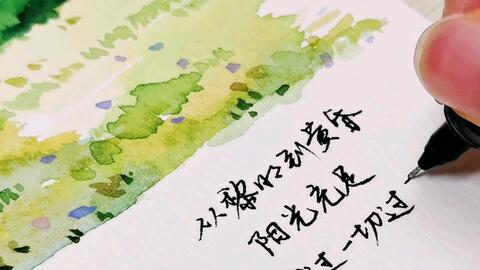 从黎明到黄昏
阳光充足
过一切过